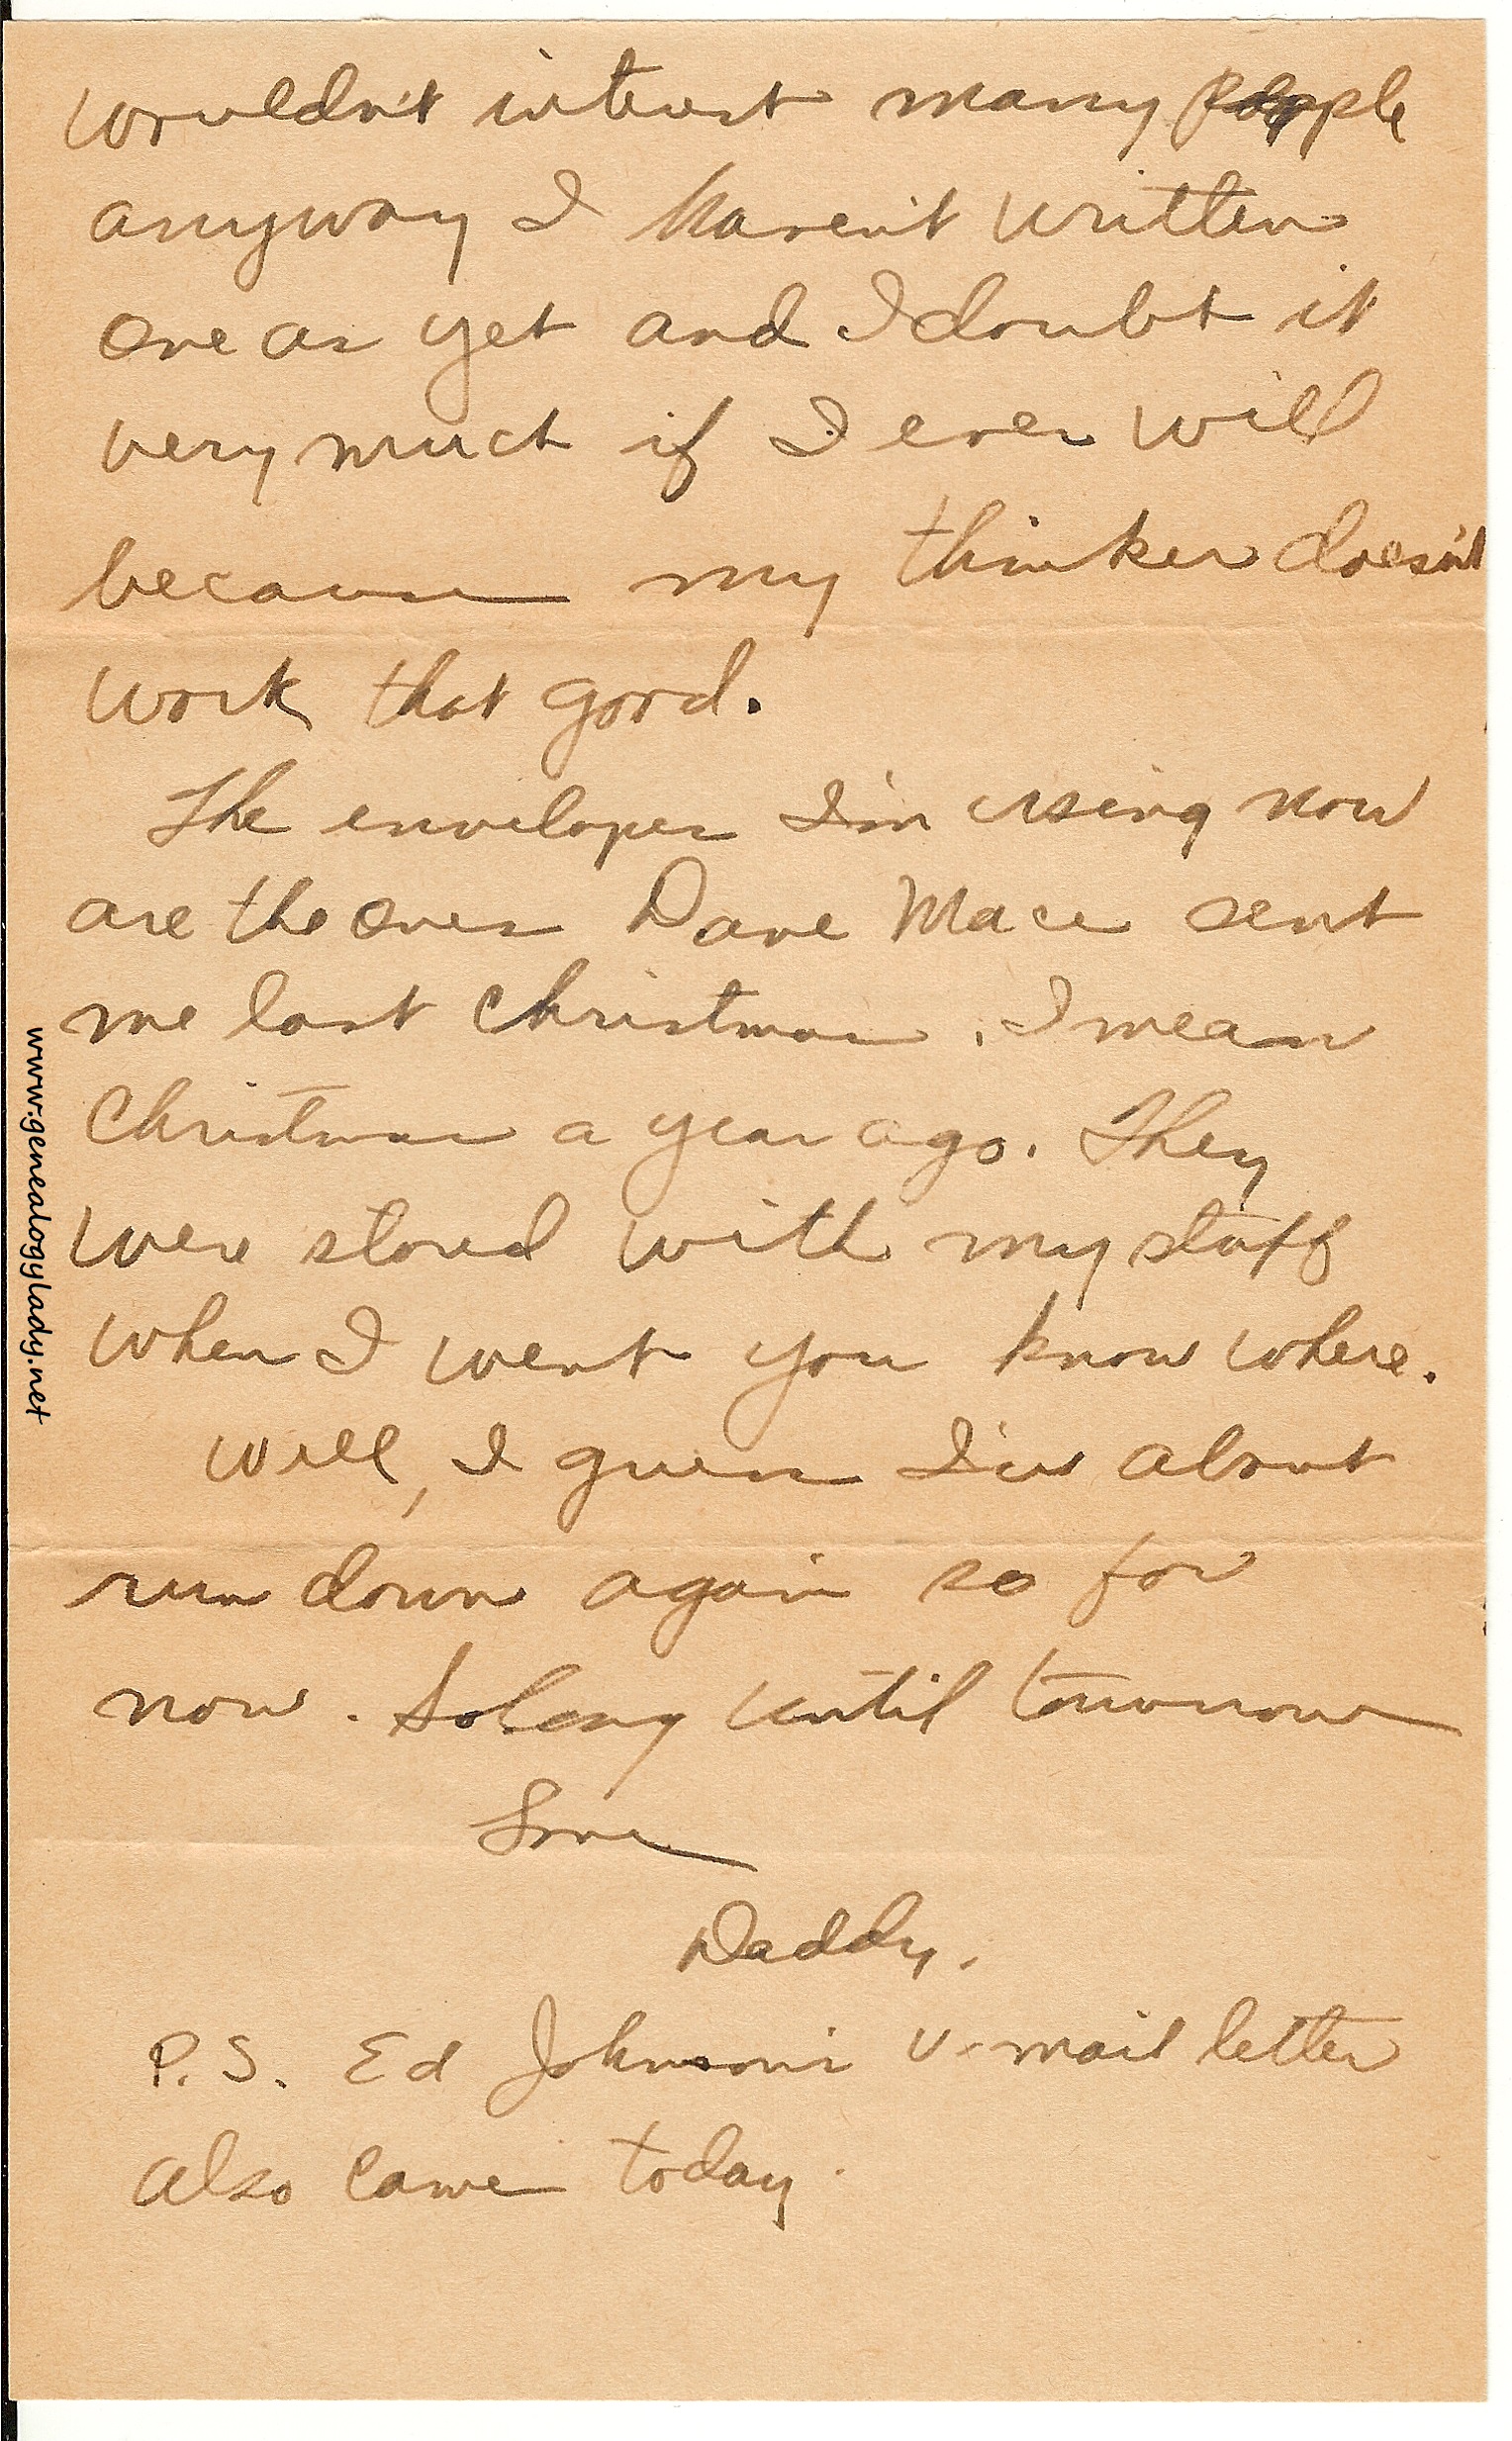 wouldn't interest many people
anyway I haven't written
one as yet and I doubt it
very much if I ever will
because my thinker doesn't
work that good.
The envelopes I'm using now
are the ones Dave Mace sent
me last Christmas. I mean
Christmas a year ago. They
were stored with my stuff
when I went you know where.
Well, I guess I've about
run down again so for
now. So long until tomorrow
Love
Daddy.
P.S. Ed Johnson's V-mail letter
also came today.
www.genealogylady.net